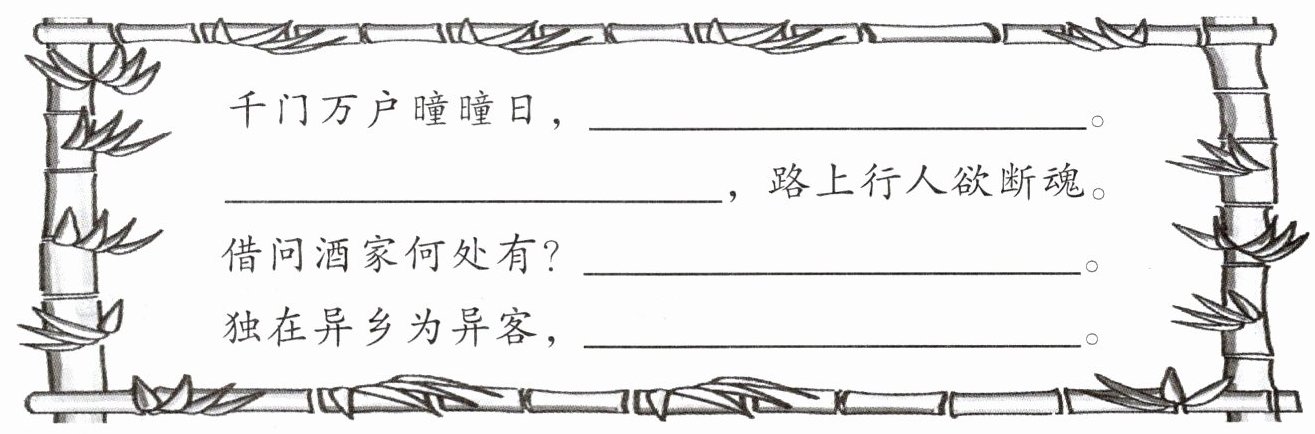 千门万户曈曈日，____________。
____________，路上行人欲断魂。
借问酒家何处有？____________。
独在异乡为异客，____________。